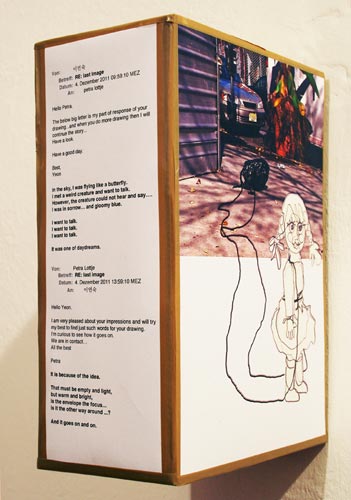 Von: 이민숙
Betreff: RE: last image
Datum: 4. Dezember 2011 09:59:10 MEZ
An: petra lottje
Hello Petra.
The below big letter is my part of response of your
drawing...and when you do more drawing then I will
continue the story...
Have a look.
Have a good day.
Best,
Yeon
In the sky, I was flying like a butterfly.
I met a weird creature and want to talk.
However, the creature could not hear and say.....
I was in sorrow... and gloomy blue.
I want to talk.
I want to talk.
I want to talk.
It was one of daydreams.
Von: Petra Lottje
Betreff: RE: last image
Datum: 4. Dezember 2011 13:59:10 MEZ
An: 이민숙
Hello Yeon.
I am very pleased about your impressions and will try
my best to find just such words for your drawing.
I'm curious to see how it goes on.
We are in contact...
All the best
Petra
It is because of the idea.
That must be empty and light,
but warm and bright,
Is the envelope the focus...
is it the other way around ...?
And it goes on and on.